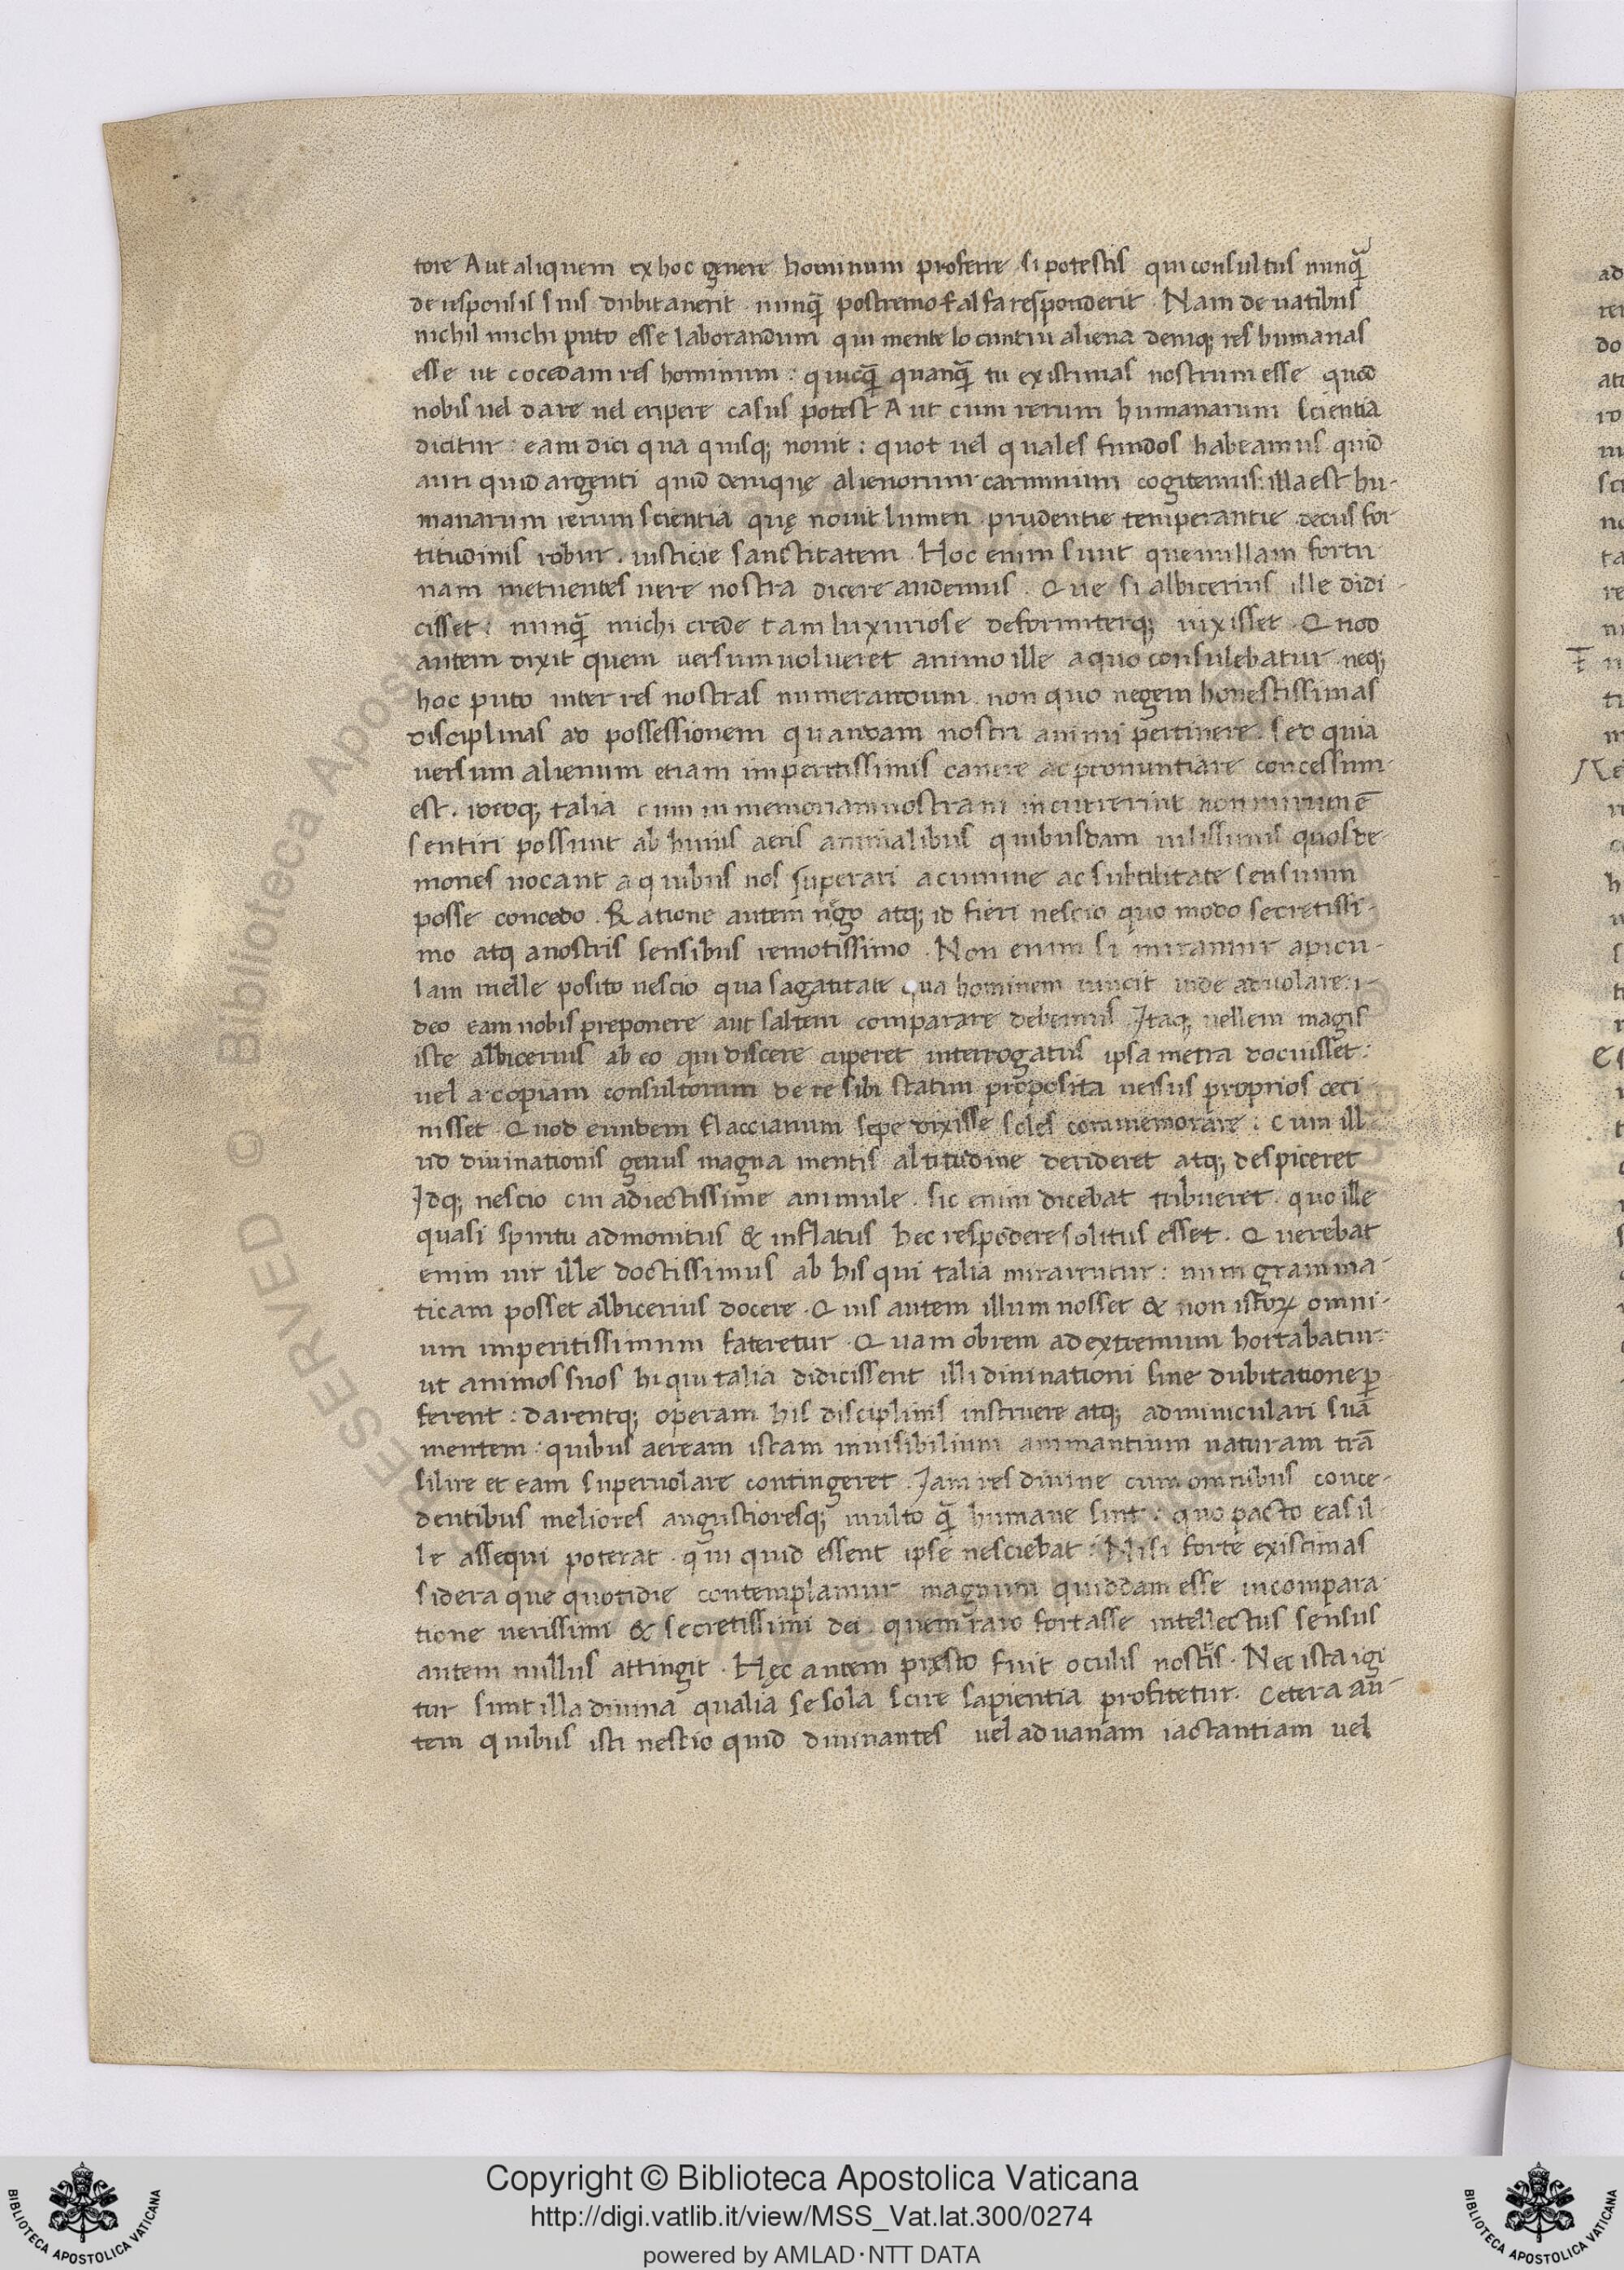 tore Aut aliquem ex hoc genere hominum proferre si potestis qui consultus nunq̃
de responsis suis dubitauerit nunq̃ postremo falsa responderit . Nam de uatibus
nichil michi puto esse laborandum qui mente locuntur aliena deniq; res humanas
esse ut cōcedam res hominum : quicq̃ quanq̃ tu existimas nostrum esse quod
nobis uel dare uel eripere casus potest Aut cum rerum humanarum scientia
dicitur : eam dici qua quisq; nouit : quot uel quales fundos habeamus quid
auri quid argenti quid denique alienorum carminum cogitemus: illa est hu-
manarum rerum scientia quę nouit lumen prudentie temperantie decus for
titudinis robur . iusticie sanctitatem . Hoc enim sunt que nullam fortu
nam metuentes uere nostra dicere audemus . Que si albicerius ille didi-
cisset : nunq̃ michi crede tam luxuriose deformiterq; uixisset . Quod
autem dixit quem uersum uolueret animo ille a quo consulebatur neq;
hoc puto inter res nostras numerandum non quo negem honestissimas
disciplinas ad possessionem quandam nostri animi pertinere . sed quia
uersum alienum etiam imperitissimis canere ac pronuntiare concessum
est . ideoq; talia cum in memoriam nostram incurrerint non mirum ē
sentiri possunt ab huius aeris animalibus quibusdam uilissimis quos de-
mones uocant a quibus nos superari acumine ac subtilitate sensuum
posse concedo . Ratione autem nego atq; id fieri nescio quo modo secretissi-
mo atq a nostris sensibus remotissimo . Non enim si miramur apicu-
lam melle posito nescio qua sagatitate qua hominem uincit inde aduolare: i-
deo eam nobis preponere aut saltem comparare debemus . Itaq; uellem magis
iste albicerius ab eo qui discere cuperet interrogatus ipsa metra docuisset :
uel a copiam consultorum de re sibi statim proposita uersus proprios ceci
nisset . Quod eundem flaccianum sepe dixisse soles commemorare : cum ill
ud diuinationis genus magna mentis altitudine derideret atq; despiceret
Idq; nescio cui adiectissime animule . sic enim dicebat tribueret . quo ille
quasi spiritu admonitus & inflatus hec respōdere solitus esset . Querebat
enim uir ille doctissimus ab his qui talia mirarentur : num gramma-
ticam posset albicerius docere . Quis autem illum nosset & non istoꝝ omni-
um imperitissimum fateretur . Quam obrem ad extremum hortabatur:
ut animos suos hi qui talia didicissent illi diuinationi sine dubitatione ꝑ
ferent : darentq; operam his disciplinis instruere atq; adminiculari suā
mentem : quibus aeream istam inuisibilium animantium naturam trā
silire et eam superuolare contingeret . Iam res diuine cum omnibus conce-
dentibus meliores angustioresq; multo q̃ humane sint : quo pacto eas il
le assequi poterat . qui quid essent ipse nesciebat : Nisi forte existimas
sidera que quotidie contemplamur magnum quiddam esse in compara
tione uerissimi & secretissimi dei quem raro fortasse intellectus sensus
autem nullus attingit . Hęc autem pręsto fuit oculis nostris . Nec ista igi
tur sunt illa diuina qualia se sola scire sapientia profitetur . cetera au-
tem quibus isti nescio quid diuinantes uel ad uanam iactantiam uel
Copyright © Biblioteca Apostolica Vaticana
http://digi.vatlib.it/view/MSS_Vat.lat.300/0274
powered by AMLAD·NTT DATA
BIBLIOTECA APOSTOLICA VATICANA
BIBLIOTECA APOSTOLICA VATICANA